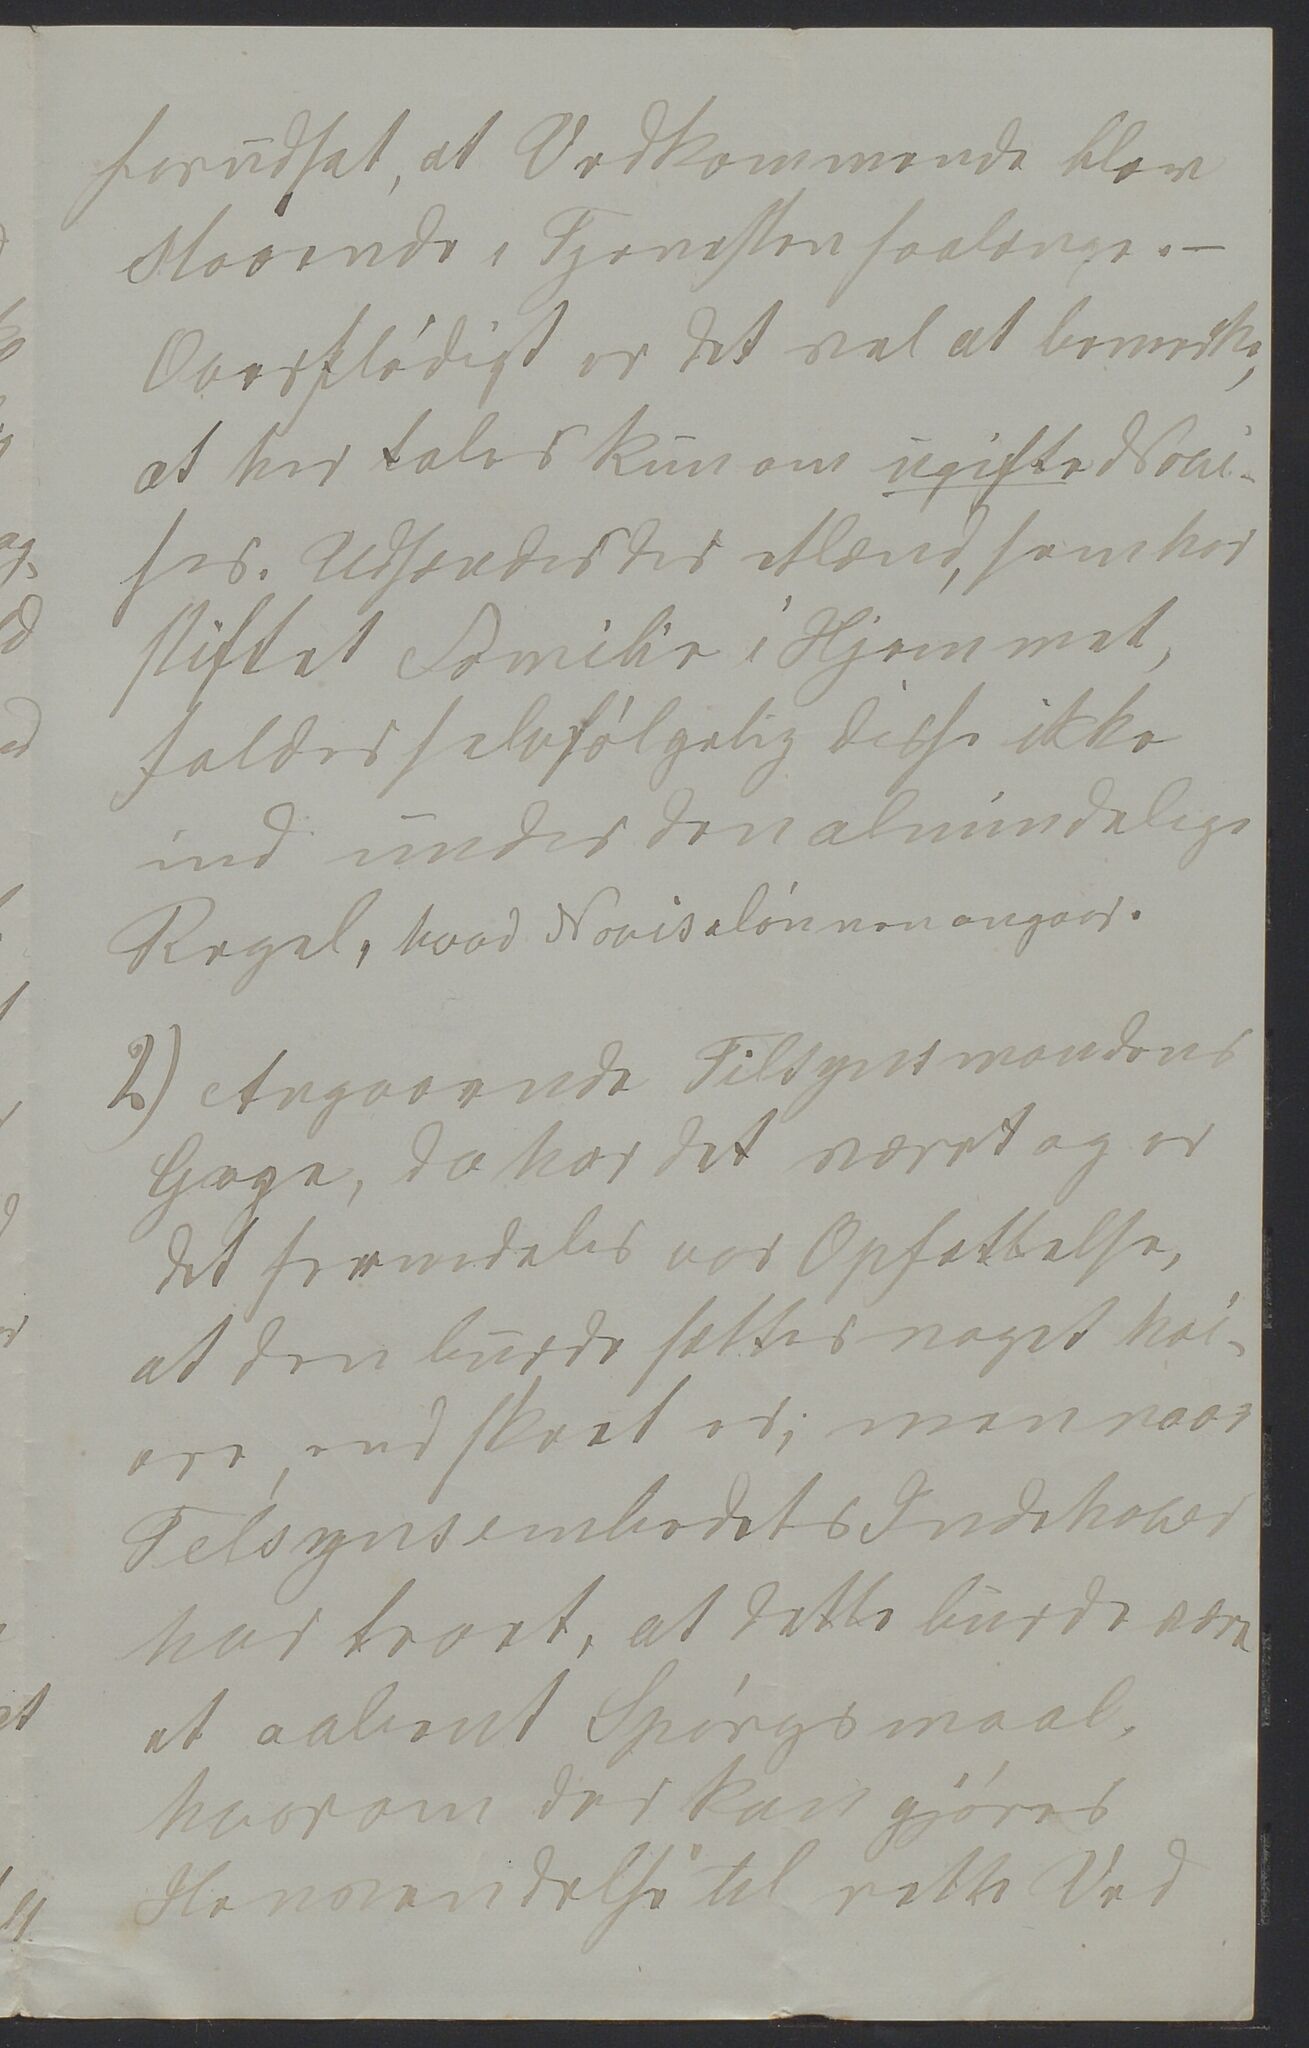 forudsat, at Vedkommende blev
staaende i Tjenesten saalænge. —
Overflødigt er det vel at bemerke,
at her tales kun om ugifte Novi-
ser. Udsendes der Mænd, som har
stiftet Familie i Hjemmet,
falder selvfølgelig disse ikke
ind under den almindelige
Regel, hvad Noviselønnen angaar.
2) Angaaende Tilsynsmandens
Gage, da har det været og er
det fremdeles vor Opfattelse,
at den burde sættes noget høi-
ere, end skeet er; men naar
Tilsynsembedets Indehaver
har troet, at dette burde være
et aabent Spørgsmaal,
hvorom der kan gjøres
Henvendelse til rette Ved